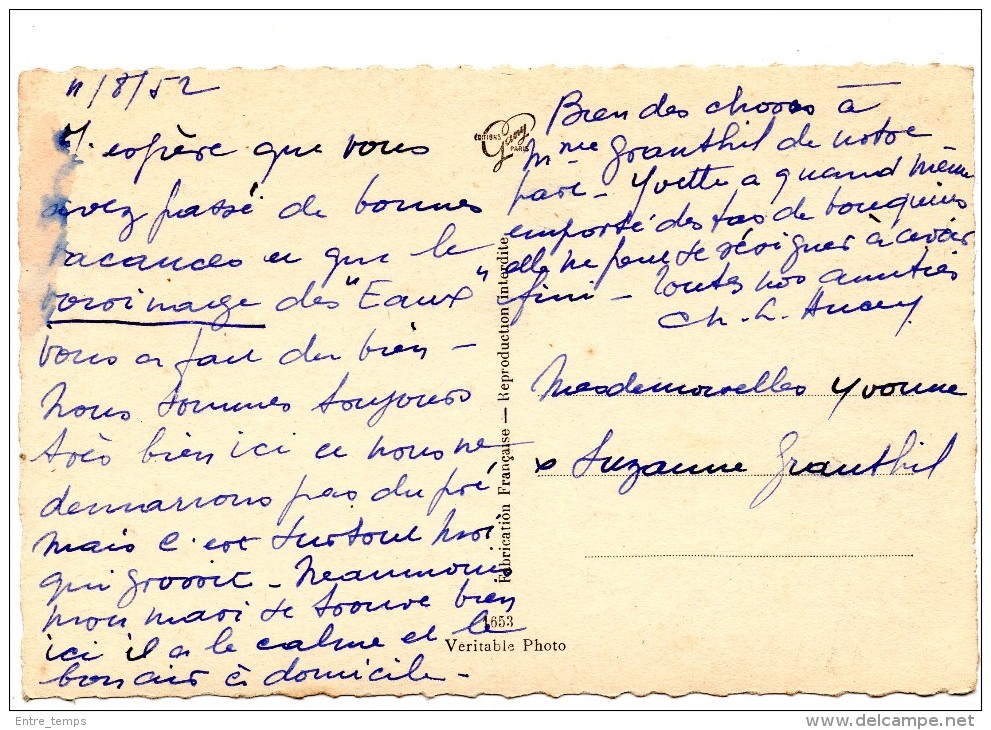 11/8/52
J'espère que vous
avez passé de bonnes
vacances et que le
voisinage des "Eaux"
vous a fait du bien —
Nous sommes toujours
très bien ici et nous ne
demarrons pas du pré
mais c'est surtout moi
qui grossit — Neanmoins
mon mari se trouve bien
ici il a le calme et le
bon air à domicile -
EDITIONS
Guy
PARIS
Fabrication Française — Reproduction interdite
1653
Veritable Photo
Bien des choses à
Mme Granthil de notre
part — Yvette a quand même
emporté des tas de bouquins
elle ne peut se résigner à avoir
fini — Toutes nos amitiés
Ch. L.
Mesdemoiselles Yvonne
& Suzanne Granthil
Entre_temps
http://www.delcampe.net